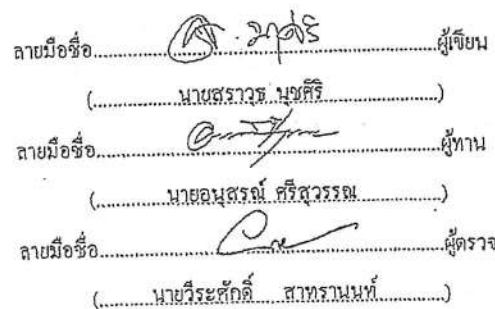 ลายมือชื่อ..........ผู้เขียน
(..........นายสราวุธ นุชศิริ..........)
ลายมือชื่อ..........ผู้ทาน
(..........นายอนุสรณ์ ศรีสุวรรณ..........)
ลายมือชื่อ..........ผู้ตรวจ
(..........นายวีระศักดิ์ สาทรานนท์..........)